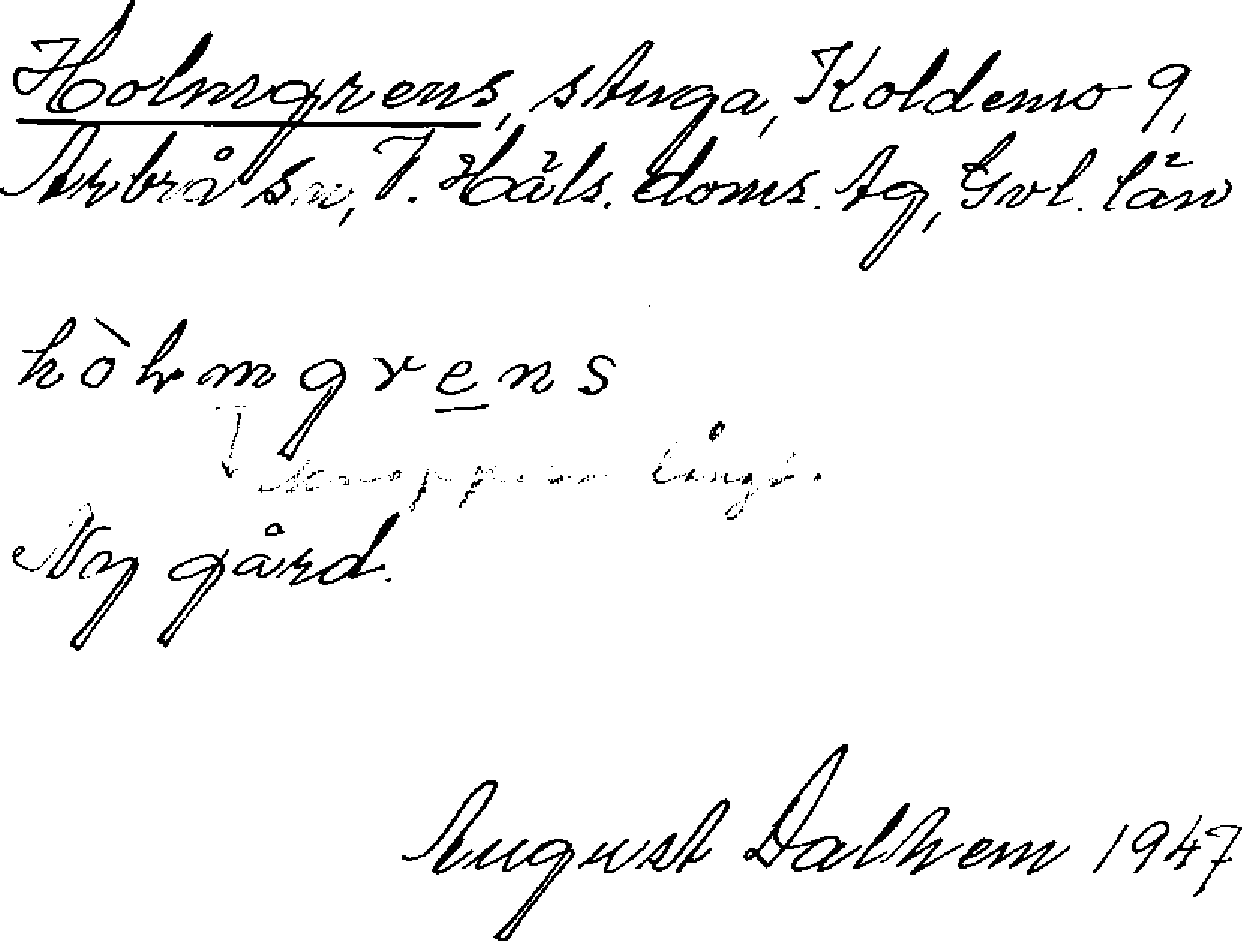 Holmgrens, stuga, Koldemo 9,
Arbrå sn, V. Häls. doms. tg, Gvl. län
hòlmgrens
knappast långt.
Ny gård.
August Dalhem 1947